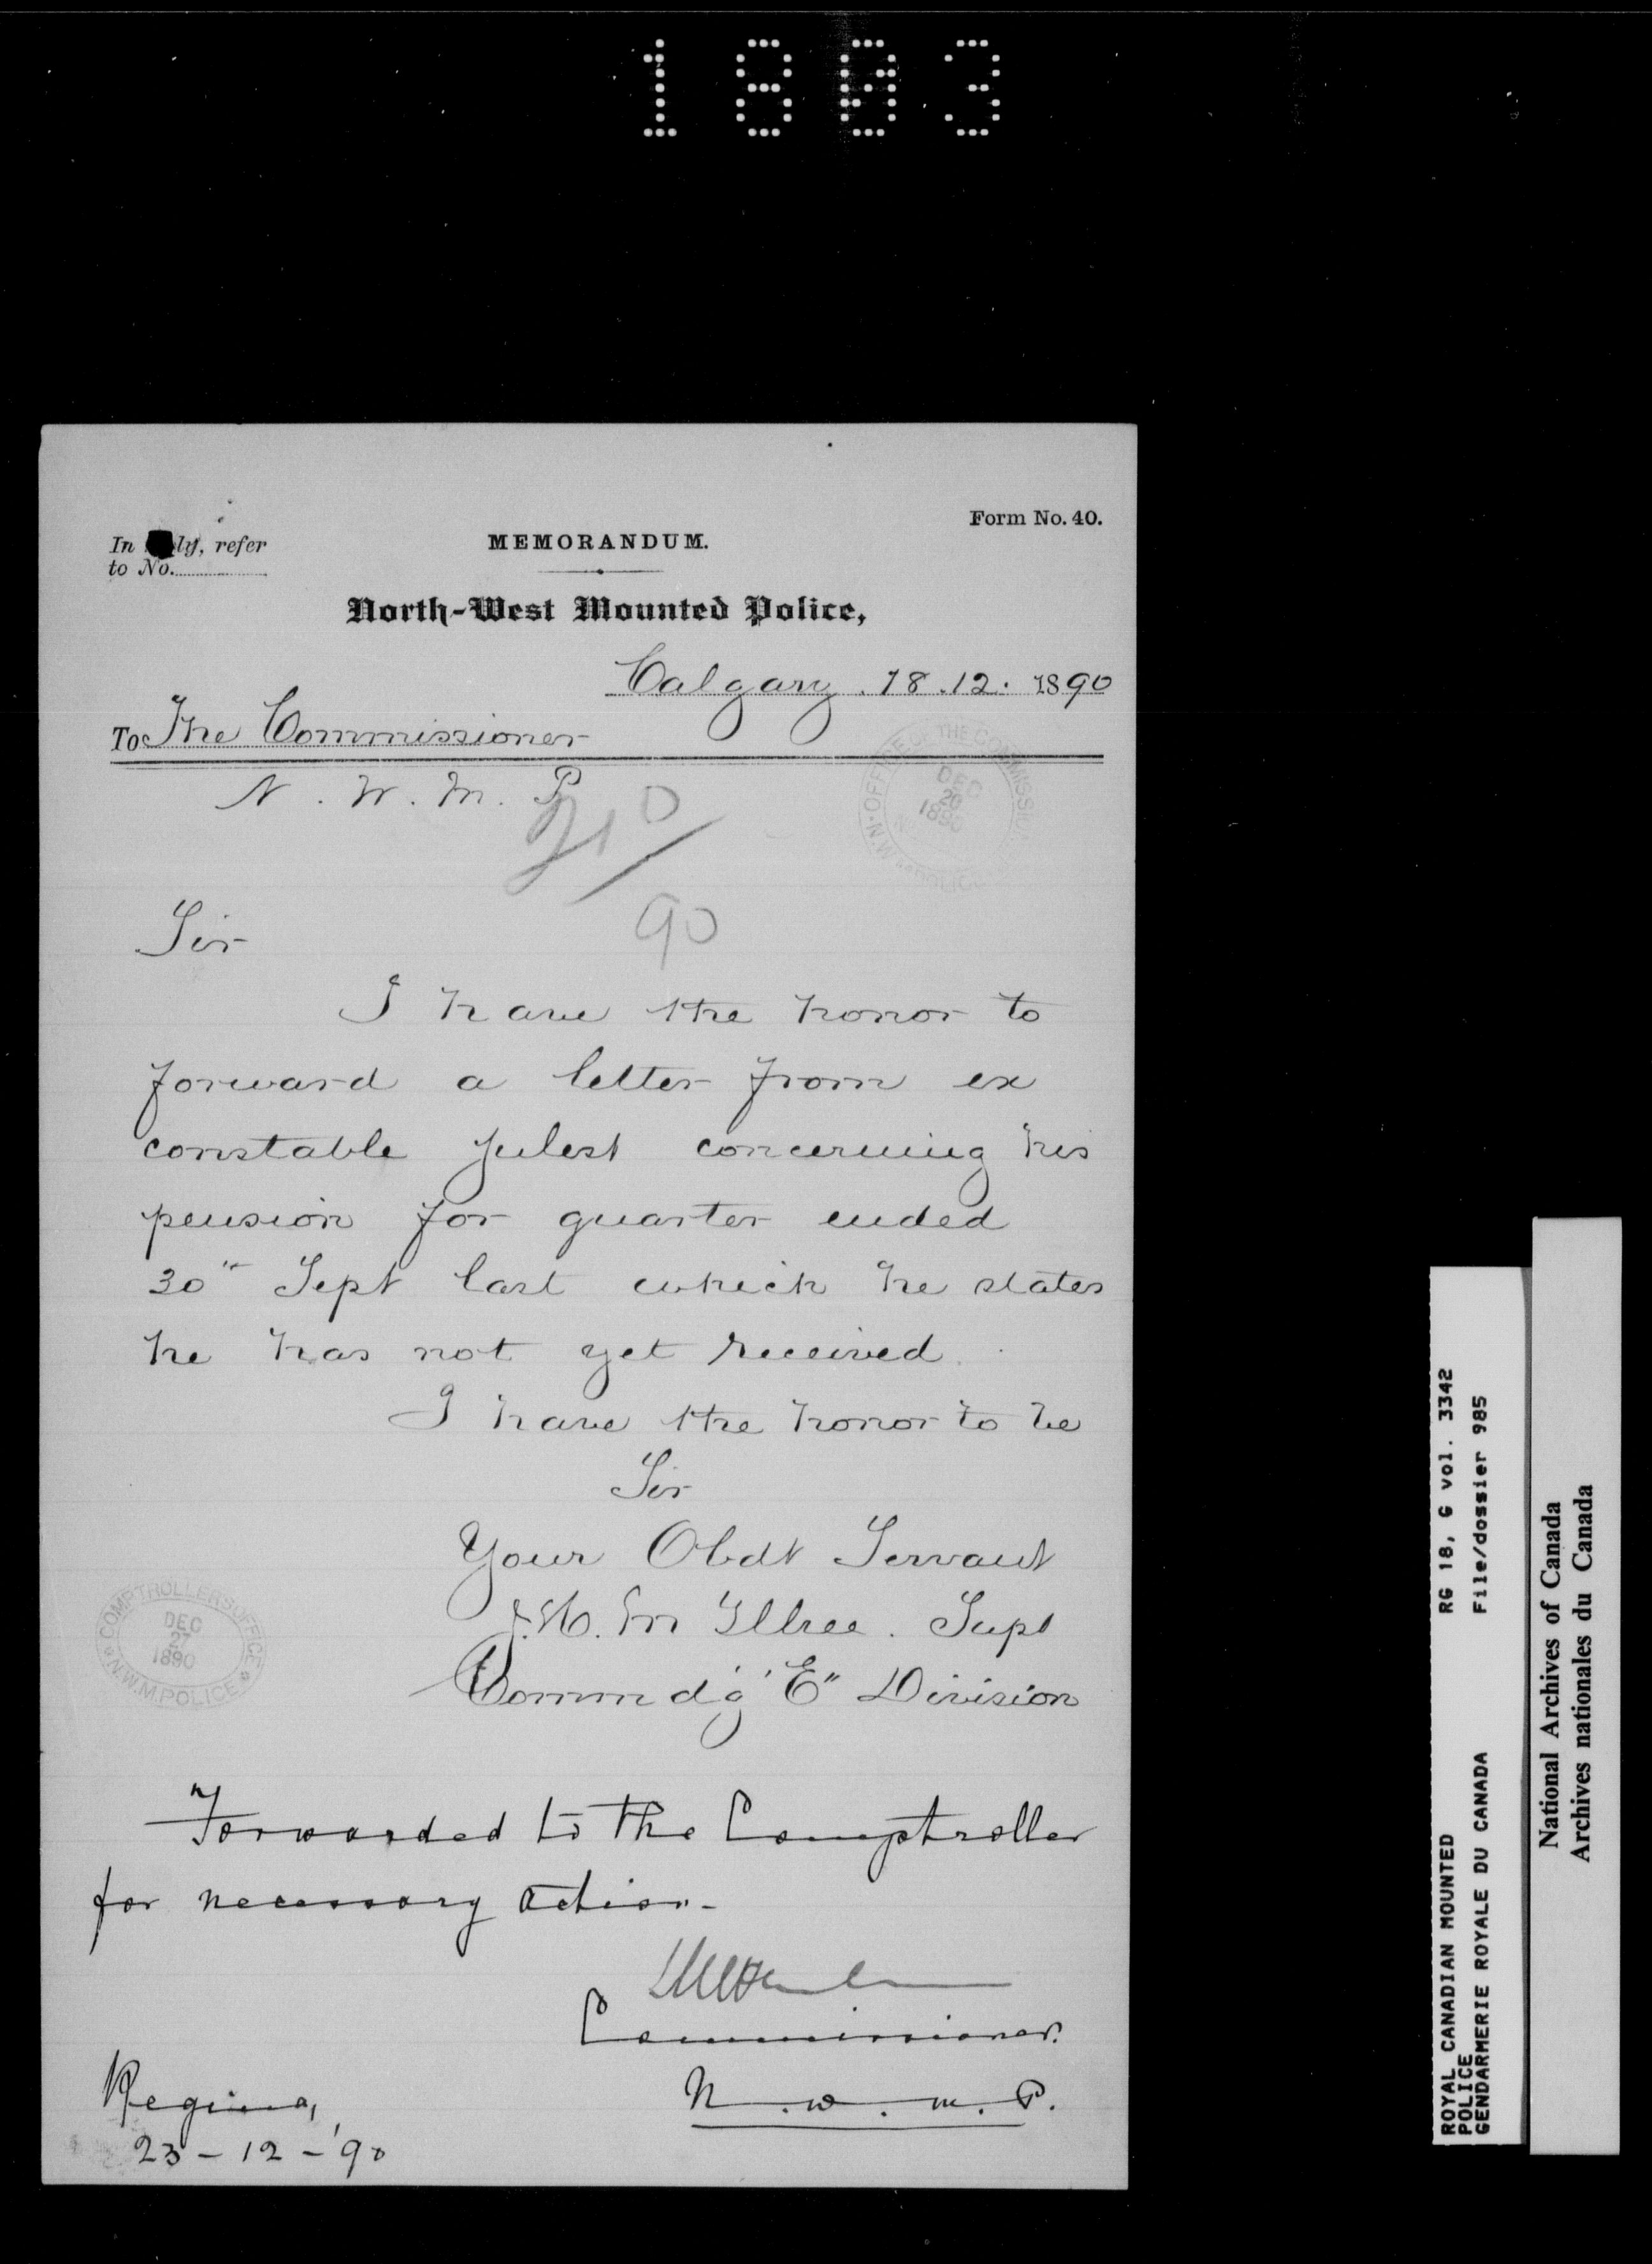 1803
Form No. 40.
In ly, refer
to No.
MEMORANDUM.
North-West Mounted Police,
Calgary . 18 . 12 . 1890
To The Commissioner
N . W . M . P
OFFICE OF THE COMMISSIO
DEC
20
1890
N.W.M. POLICE
90
Sir
I have the honor to
forward a letter from ex
constable concerning his
pension for quarter ended
30th Sept last which he states
he has not yet received.
I have the honor to be
Sir
Your Obdt Servant
Illree . Supt
Commdg "E" Division
COMPTROLLERS OFFICE
DEC
27
1890
N.W.M. POLICE
Forwarded to the Comptroller
for necessary action.-
Commissioner.
N . W . M . P.
Regina,
23 - 12 - '90
ROYAL CANADIAN MOUNTED
POLICE
GENDARMERIE ROYALE DU CANADA
RG 18, G vol. 3342
File/dossier 985
National Archives of Canada
Archives nationales du Canada